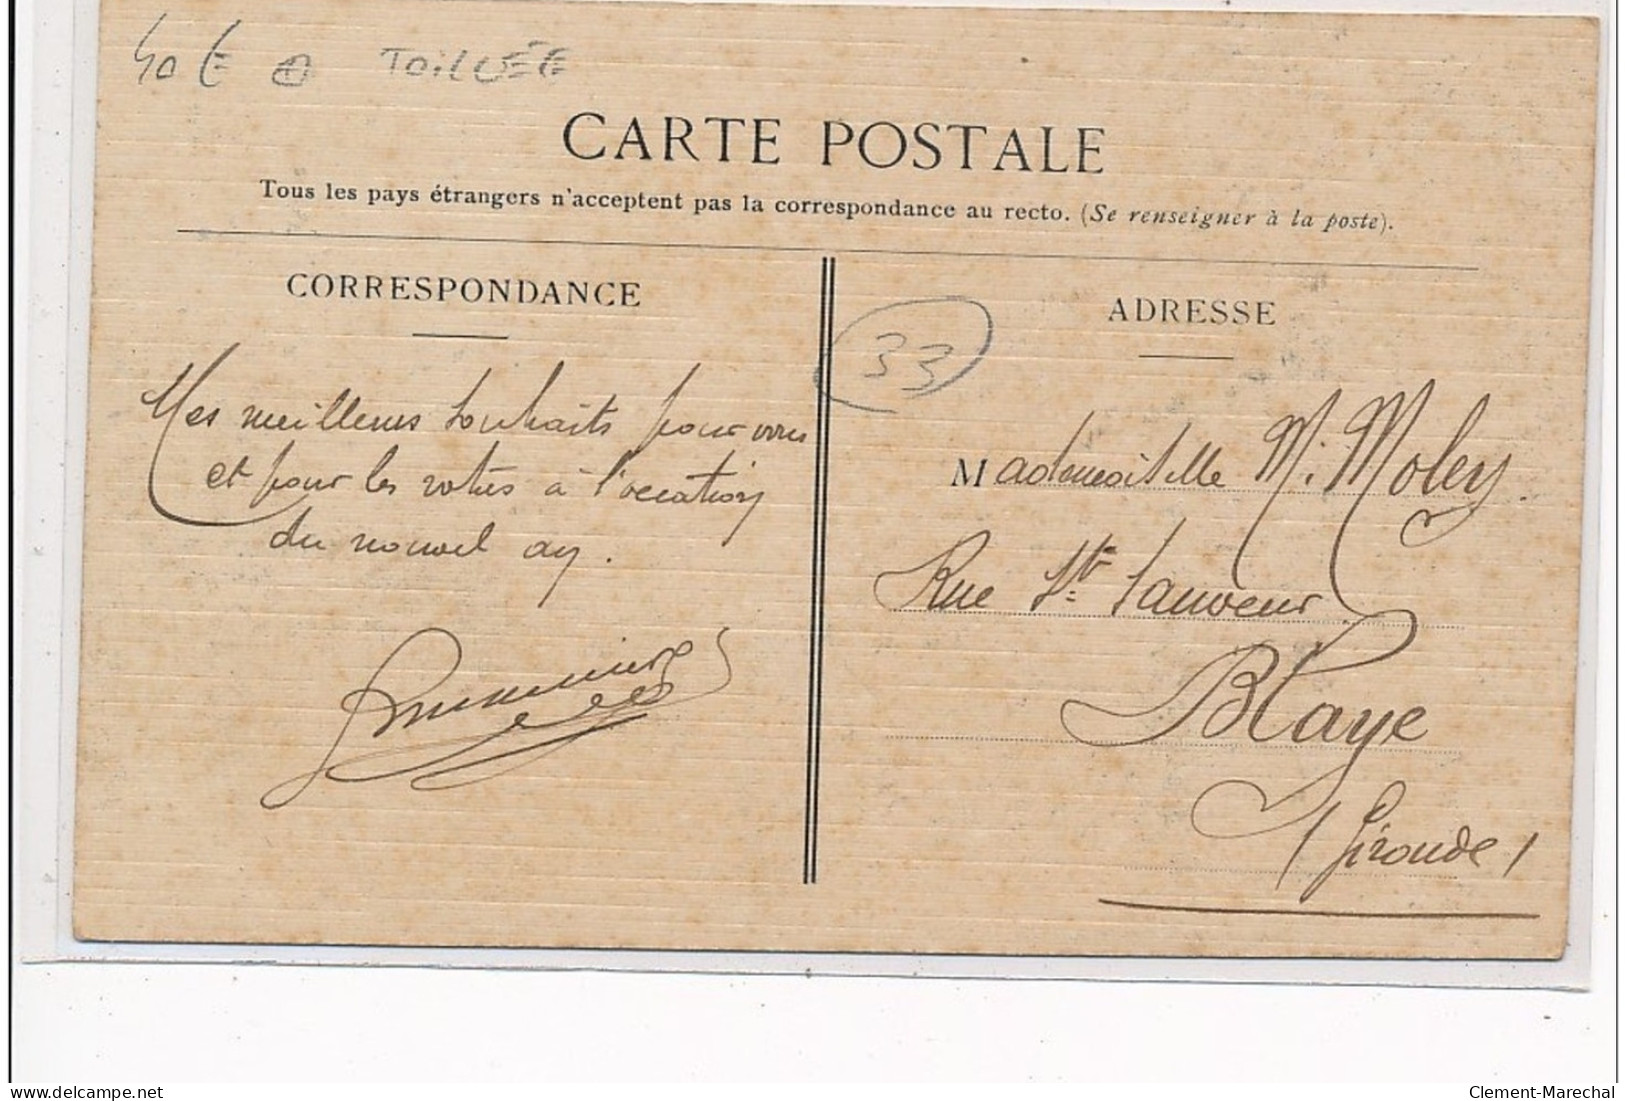 40 € TOILÉE
CARTE POSTALE
Tous les pays étrangers n'acceptent pas la correspondance au recto. (Se renseigner à la poste).
CORRESPONDANCE
Mes meilleurs souhaits pour vous
et pour les votres à l'occasion
du nouvel an.
ADRESSE
33
Mademoiselle M. Moley.
Rue St. Sauveur
Blaye
(Gironde)
delcampe.net
Clement-Marechal